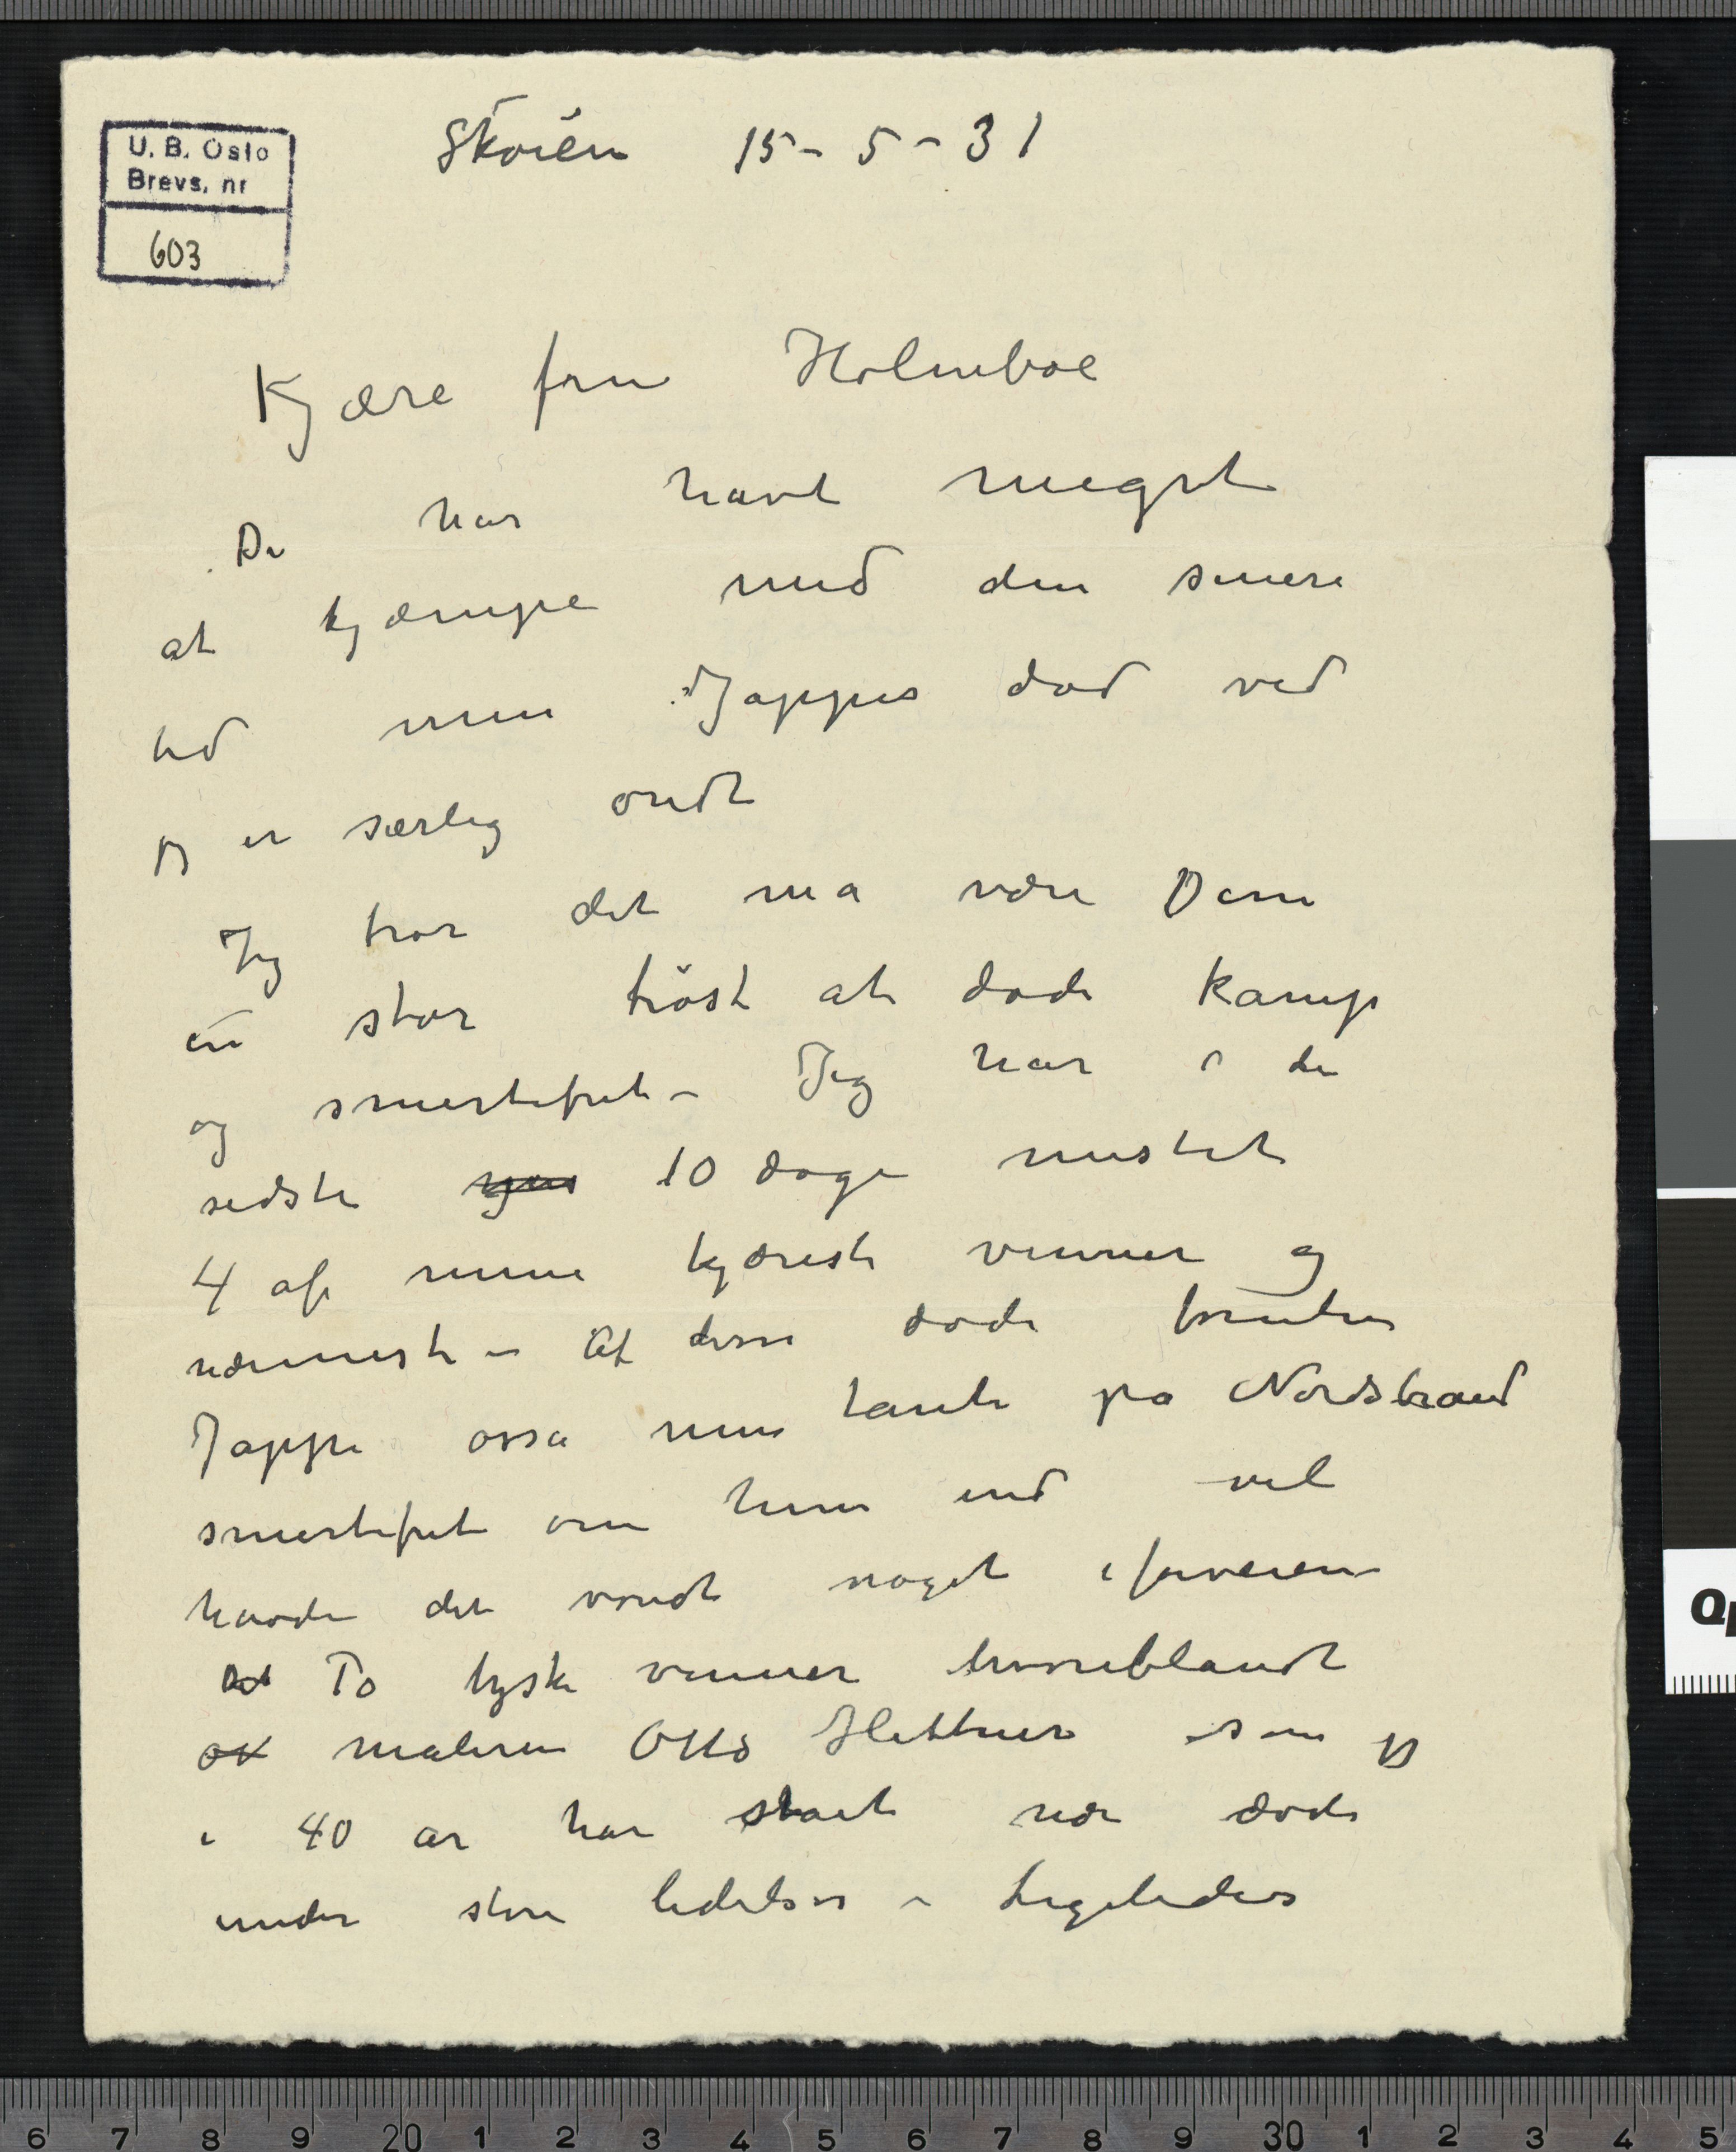 U. B. Oslo
Brevs. nr
603
Skøien 15-5-31
Kjære fru Holmboe
De har havt meget
at kjæmpe med den senere
tid men Jappes død ved
jeg er særlig ondt
Jeg tror det må være Dem
en stor trøst at døde kamp
og smertefrit – Jeg har i de
sidste 10 dage mistet
4 af mine kjæreste venner og
nærmeste – Af disse døde foruten
Jappe osså min tante på Nordstrand
smertefrit om hun end vel
havde det vondt noget iforveien
Det To tyske venner hvoriblandt
maleren Otto Hettner som jeg
i 40 år har stået nær døde
under store lidelser – Ligeledes